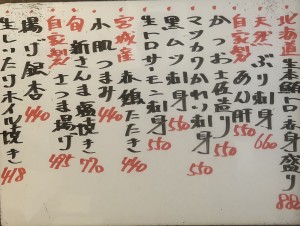 北海道 生本鮪トロ赤身盛り 880
天然 ぶり刺身 660
自家製 あん肝 550
かつお土佐造り 550
マツカワかれい刺身 550
黒ムツ刺身 550
生トロサーモン刺身 550
宮城産 赤鶏たたき 440
小肌つまみ 440
旬 新さんま塩焼き 770
自家製 さつま揚げ 495
揚げ銀杏 440
418